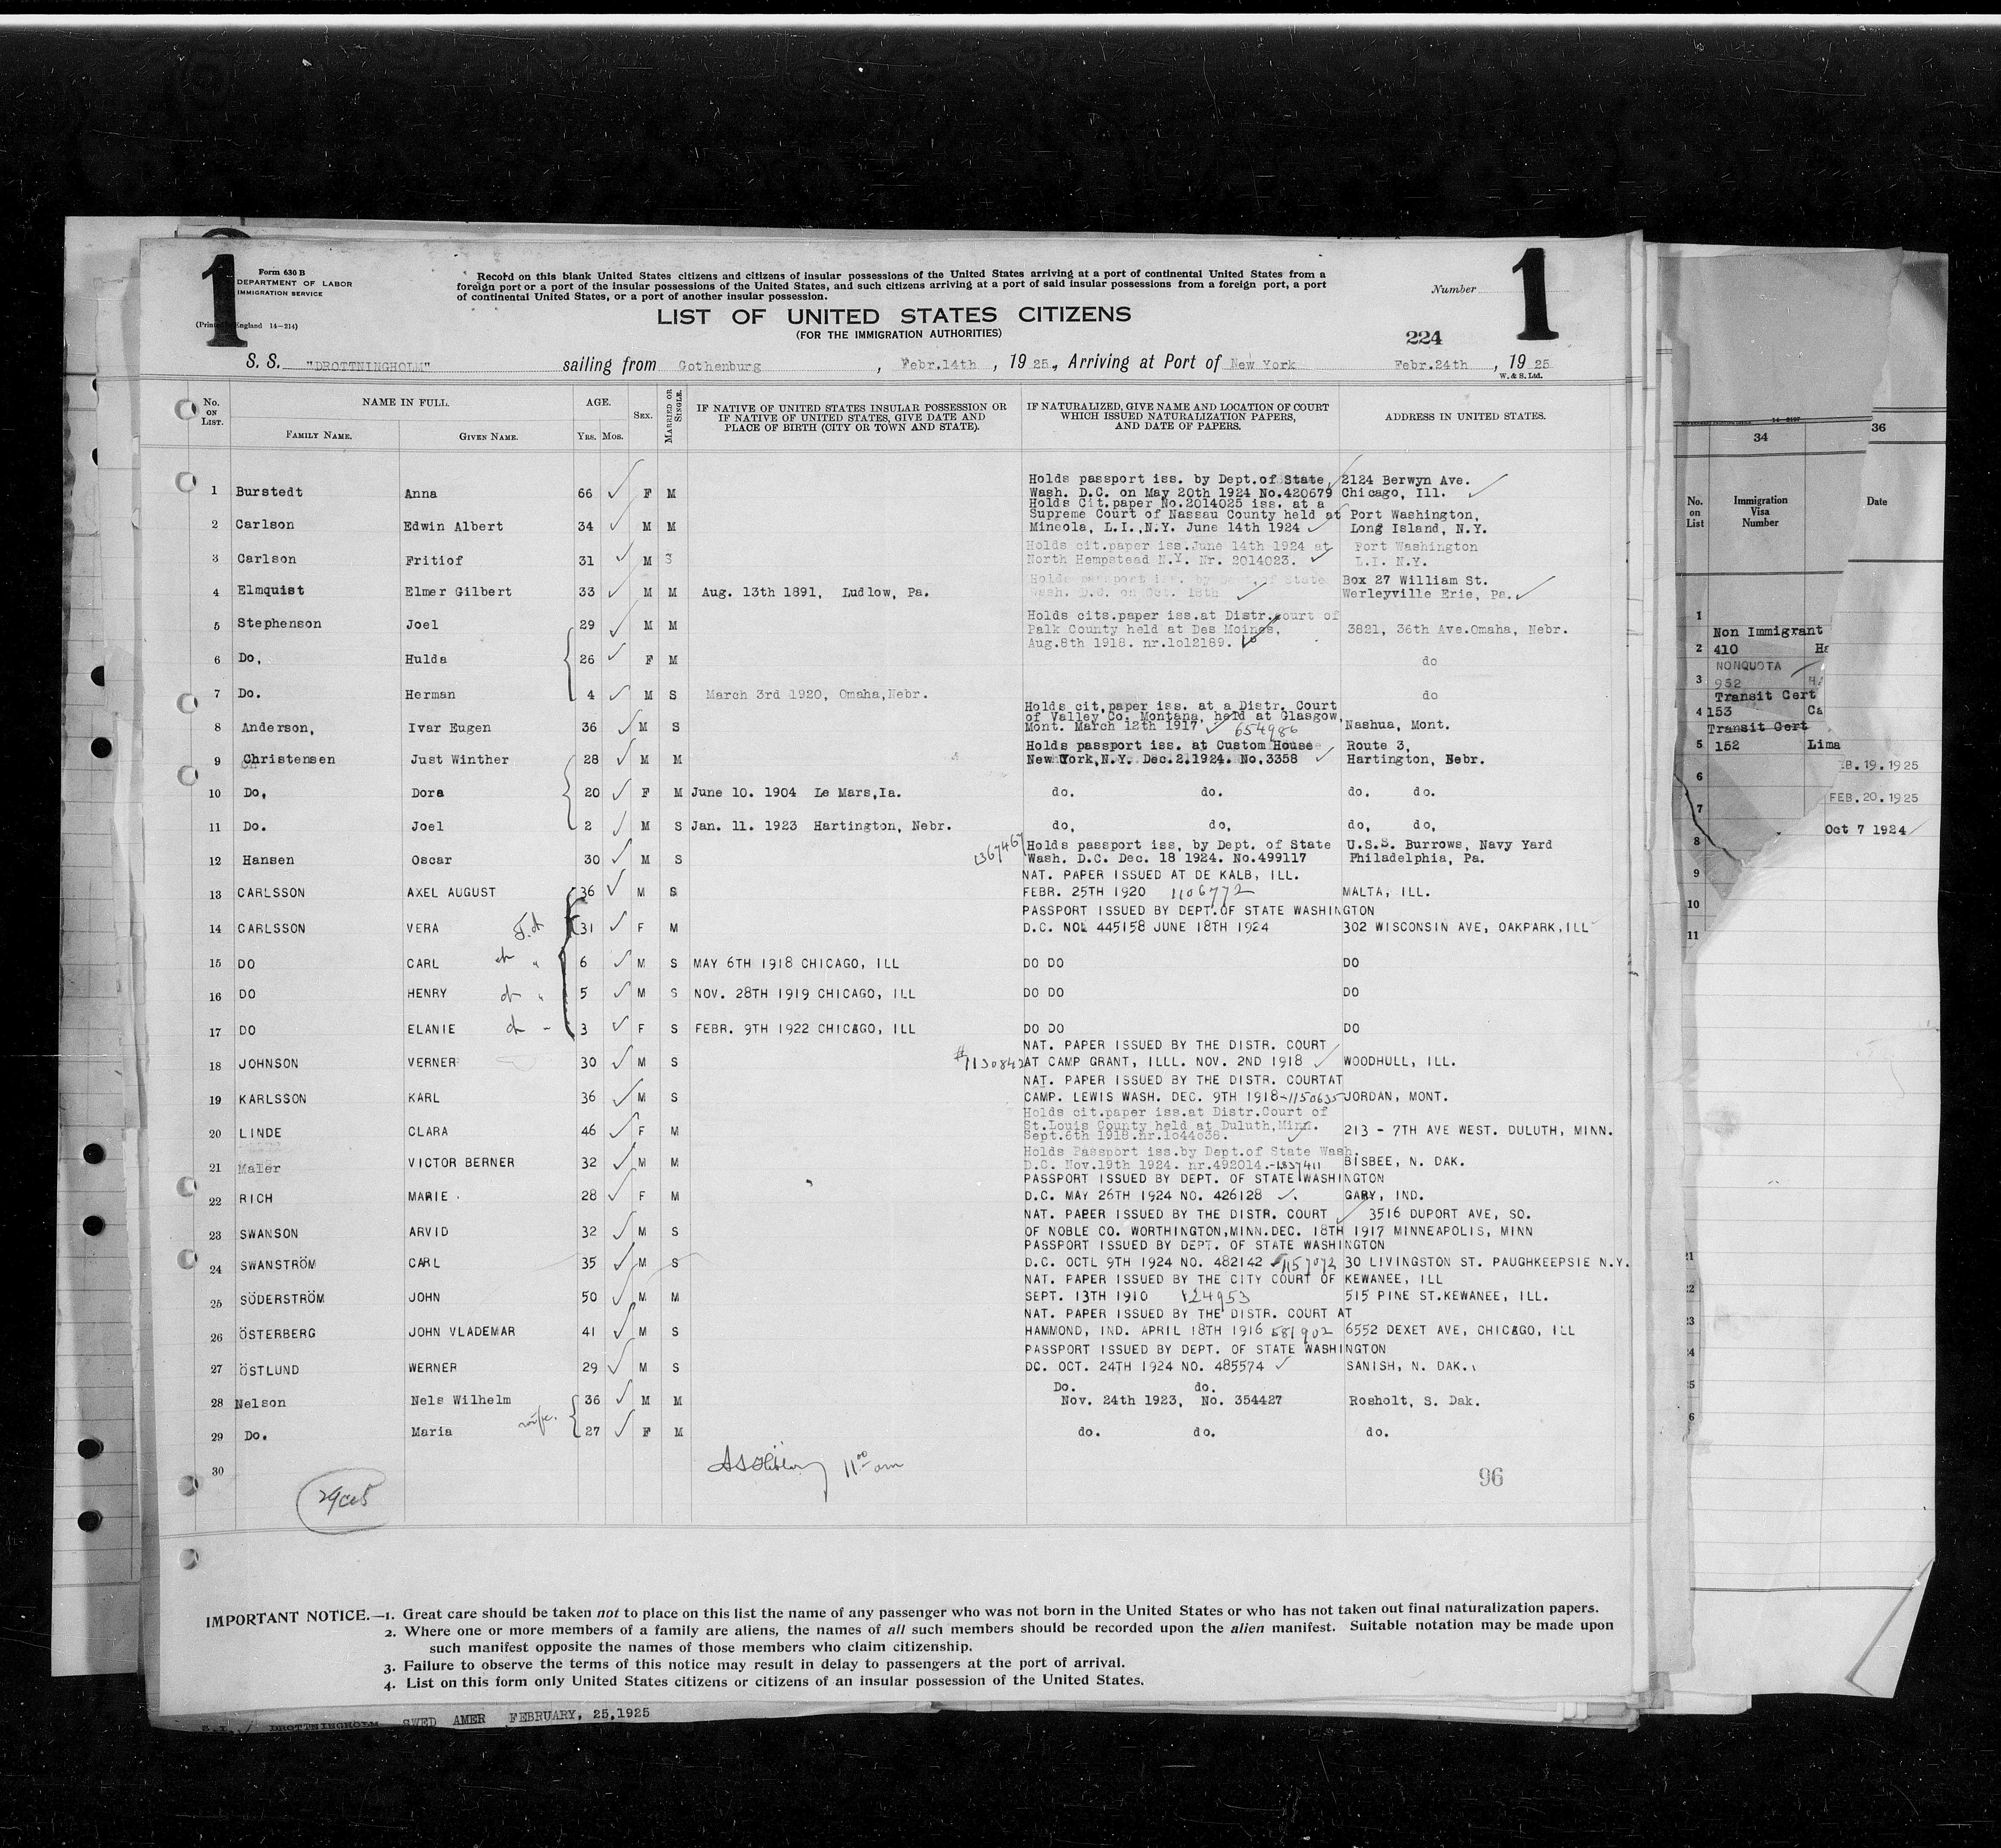 1
Form 630 B
DEPARTMENT OF LABOR
IMMIGRATION SERVICE
England 14-214)
Record on this blank United States citizens and citizens of insular possessions of the United States arriving at a port of continental United States from a
foreign port or a port of the insular possessions of the United States, and such citizens arriving at a port of said insular possessions from a foreign port, a port
of continental United States, or a port of another insular possession.
Number
1
LIST OF UNITED STATES CITIZENS
(FOR THE IMMIGRATION AUTHORITIES)
224
S. S. "DROTTNINGHOLM" sailing from Gothenburg, Febr.14th, 1925., Arriving at Port of New York Febr.24th, 1925
W. & S. Ltd.
No. on List. NAME IN FULL. AGE. SEX. MARRIED OR SINGLE. IF NATIVE OF UNITED STATES INSULAR POSSESSION OR IF NATIVE OF UNITED STATES, GIVE DATE AND PLACE OF BIRTH (CITY OR TOWN AND STATE). IF NATURALIZED, GIVE NAME AND LOCATION OF COURT WHICH ISSUED NATURALIZATION PAPERS, AND DATE OF PAPERS. ADDRESS IN UNITED STATES.
FAMILY NAME. GIVEN NAME. YRS. MOS.
Holds passport iss. by Dept.of State 2124 Berwyn Ave.
1 Burstedt Anna 66 ✓ F M Wash. D.C. on May 20th 1924 No.420679 Chicago, Ill. ✓
Holds Cit.paper No.2014025 iss. at a
Supreme Court of Nassau County held at Port Washington,
2 Carlson Edwin Albert 34 ✓ M M Mineola, L.I.,N.Y. June 14th 1924 ✓ Long Island, N.Y.
Holds cit.paper iss.June 14th 1924 at Port Washington
3 Carlson Fritiof 31 ✓ M S North Hempstead N.Y. Nr. 2014023. ✓ L.I. N.Y.
Holds passport iss. by Dept.of State Box 27 William St.
4 Elmquist Elmer Gilbert 33 ✓ M M Aug. 13th 1891, Ludlow, Pa. Wash. D.C. on Oct. 18th ✓ Werleyville Erie, Pa. ✓
Holds cits.paper iss.at Distr.court of
5 Stephenson Joel 29 ✓ M M Palk County held at Des Moines, 3821, 36th Ave.Omaha, Nebr.
Aug.8th 1918. nr.1o12189. ✓
6 Do, Hulda 26 ✓ F M do
7 Do. Herman 4 ✓ M S March 3rd 1920, Omaha,Nebr. do
Holds cit,paper iss. at a Distr. Court
of Valley Co. Montana, held at Glasgow,
8 Anderson, Ivar Eugen 36 ✓ M S Mont. March 12th 1917 ✓ 654986 Nashua, Mont.
Holds passport iss. at Custom House Route 3,
9 Christensen Just Winther 28 ✓ M M New York,N.Y. Dec.2.1924. No.3358 ✓ Hartington, Nebr.
10 Do, Dora 20 ✓ F M June 10. 1904 Le Mars,Ia. do. do. do. do.
11 Do. Joel 2 ✓ M S Jan. 11. 1923 Hartington, Nebr. do, do, do, do,
1367467 Holds passport iss, by Dept. of State U.S.S. Burrows, Navy Yard
12 Hansen Oscar 30 ✓ M S Wash. D.C. Dec. 18 1924. No.499117 Philadelphia, Pa.
NAT. PAPER ISSUED AT DE KALB, ILL.
13 CARLSSON AXEL AUGUST 36 ✓ M S FEBR. 25TH 1920 1106772 MALTA, ILL.
PASSPORT ISSUED BY DEPT.OF STATE WASHINGTON
14 CARLSSON VERA 31 ✓ F M D.C. NOL 445158 JUNE 18TH 1924 302 WISCONSIN AVE, OAKPARK,ILL
15 DO CARL 6 ✓ M S MAY 6TH 1918 CHICAGO, ILL DO DO DO
16 DO HENRY 5 ✓ M S NOV. 28TH 1919 CHICAGO, ILL DO DO DO
17 DO ELANIE 3 ✓ F S FEBR. 9TH 1922 CHICAGO, ILL DO DO DO
NAT. PAPER ISSUED BY THE DISTR. COURT
18 JOHNSON VERNER 30 ✓ M S #1130842 AT CAMP GRANT, ILLL. NOV. 2ND 1918 ✓ WOODHULL, ILL.
NAT. PAPER ISSUED BY THE DISTR. COURTAT
19 KARLSSON KARL 36 ✓ M S CAMP. LEWIS WASH. DEC. 9TH 1918-1150635 JORDAN, MONT.
Holds cit.paper iss.at Distr.Court of
St.Louis County held at Duluth,Minn.
20 LINDE CLARA 46 ✓ F M Sept.6th 1918.nr.1o44o38. ✓ 213 - 7TH AVE WEST. DULUTH, MINN.
Holds Passport iss.by Dept.of State Wash.
21 Maler VICTOR BERNER 32 ✓ M M D.C. Nov.19th 1924. nr.492014.-1837411 BISBEE, N. DAK.
PASSPORT ISSUED BY DEPT. OF STATE WASHINGTON
22 RICH MARIE. 28 ✓ F M D.C. MAY 26TH 1924 NO. 426128 ✓. GARY, IND.
NAT. PAPER ISSUED BY THE DISTR. COURT ✓ 3516 DUPORT AVE, SO.
23 SWANSON ARVID 32 ✓ M S OF NOBLE CO. WORTHINGTON,MINN.DEC. 18TH 1917 MINNEAPOLIS, MINN
PASSPORT ISSUED BY DEPT. OF STATE WASHINGTON
24 SWANSTRÖM CARL 35 ✓ M S D.C. OCTL 9TH 1924 NO. 482142 1157072 30 LIVINGSTON ST. PAUGHKEEPSIE N.Y.
NAT. PAPER ISSUED BY THE CITY COURT OF KEWANEE, ILL
25 SÖDERSTRÖM JOHN 50 ✓ M M SEPT. 13TH 1910 124953 515 PINE ST.KEWANEE, ILL.
NAT. PAPER ISSUED BY THE DISTR. COURT AT
26 ÖSTERBERG JOHN VLADEMAR 41 ✓ M S HAMMOND, IND. APRIL 18TH 1916 581902 6552 DEXET AVE, CHICAGO, ILL
PASSPORT ISSUED BY DEPT. OF STATE WASHINGTON
27 ÖSTLUND WERNER 29 ✓ M S DC. OCT. 24TH 1924 NO. 485574 ✓ SANISH, N. DAK.
Do. do.
28 Nelson Nels Wilhelm 36 ✓ M M Nov. 24th 1923, No. 354427 Rosholt, S. Dak.
29 Do. Maria wife. 27 ✓ F M do. do. do.
30 11 00 am
96
IMPORTANT NOTICE.—1. Great care should be taken not to place on this list the name of any passenger who was not born in the United States or who has not taken out final naturalization papers.
2. Where one or more members of a family are aliens, the names of all such members should be recorded upon the alien manifest. Suitable notation may be made upon
such manifest opposite the names of those members who claim citizenship.
3. Failure to observe the terms of this notice may result in delay to passengers at the port of arrival.
4. List on this form only United States citizens or citizens of an insular possession of the United States.
DROTTNINGHOLM SWED AMER FEBRUARY, 25,1925
34 36
No. on List Immigration Visa Number Date
1
Non Immigrant
2 410
NONQUOTA
3 952
Transit Cert
4 153 Ca
Transit Cert
5 152 Lima
6 .19.1925
7 FEB.20.1925
Oct 7 1924
8
9
10
11